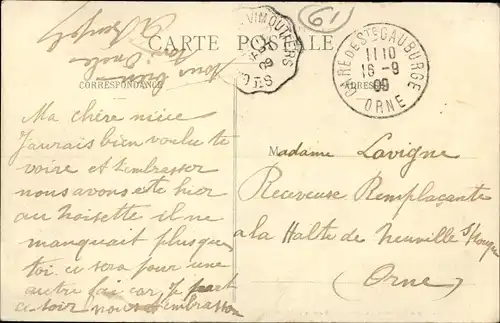 61
VIMOUTIERS
CARTE POSTALE
GARE DE STE GAUBURGE
11 10
16 -9
09
ORNE
CORRESPONDANCE
ADRESSE
Ma chère niice
J'aurais bien voulu te
voire et t'embrasser
nous avons este hier
au Noisette il ne
manquait plus que
toi ce sera pour une
autre fai car je part
ce soir nous t'embrasson
Madame Lavigne
Receveuse Remplaçante
a la Halte de Neuville s/Touques
(Orne)